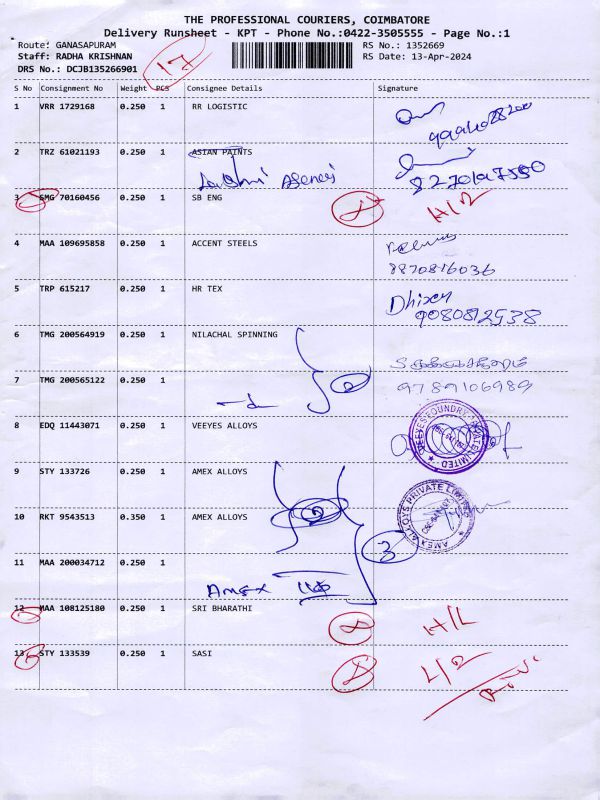 THE PROFESSIONAL COURIERS, COIMBATORE
Delivery Runsheet - KPT - Phone No.:0422-3505555 - Page No.:1
Route: GANASAPURAM RS No.: 1352669
Staff: RADHA KRISHNAN RS Date: 13-Apr-2024
DRS No.: DCJB135266901 17
S No Consignment No Weight PCS Consignee Details Signature
1 VRR 1729168 0.250 1 RR LOGISTIC
2 TRZ 61021193 0.250 1 ASIAN PAINTS
3 SMG 70160456 0.250 1 SB ENG
4 MAA 109695858 0.250 1 ACCENT STEELS
8870816036
5 TRP 615217 0.250 1 HR TEX
9080812538
6 TMG 200564919 0.250 1 NILACHAL SPINNING
7 TMG 200565122 0.250 1 2
9789106989
8 EDQ 11443071 0.250 1 VEEYES ALLOYS
9 STY 133726 0.250 1 AMEX ALLOYS
AMEX ALLOYS PRIVATE LIMITED
10 RKT 9543513 0.350 1 AMEX ALLOYS
3
11 MAA 200034712 0.250 1
Amex
12 MAA 108125180 0.250 1 SRI BHARATHI H/L
13 STY 133539 0.250 1 SASI